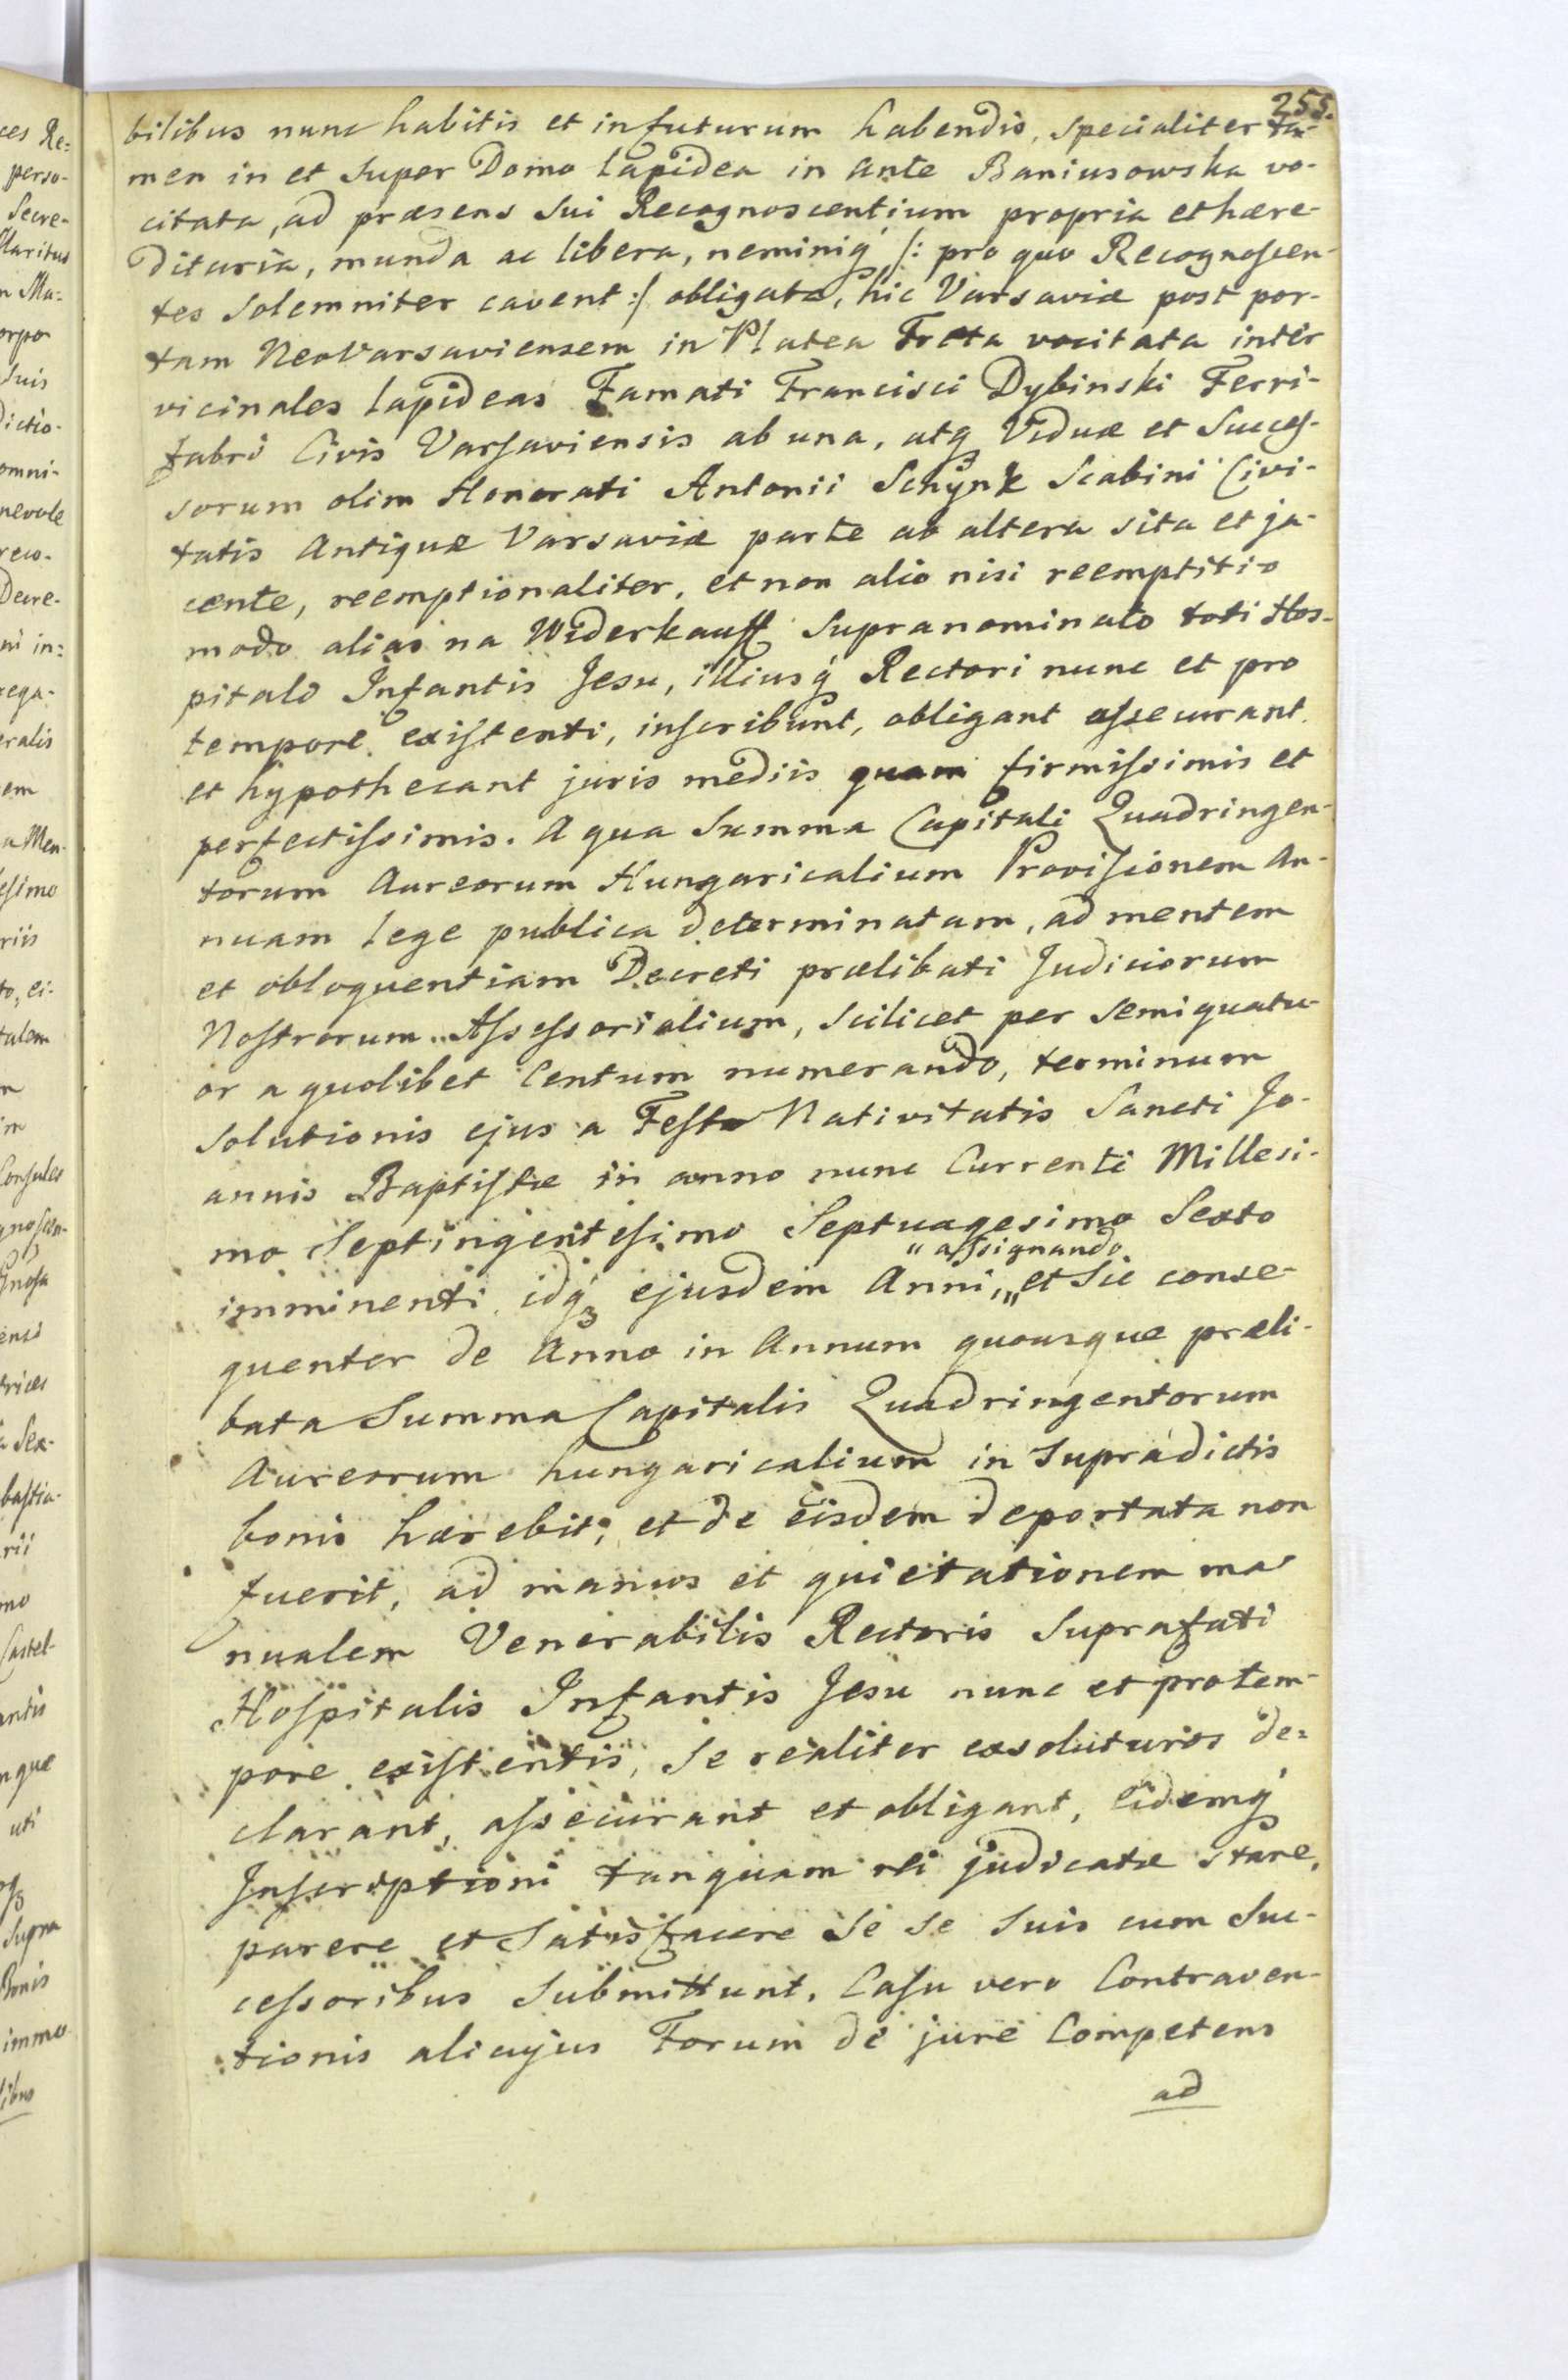 255.
bilibus nunc habitis et in futurum habendis, specialiter ta-
men in et super Domo lapidea in ante Baniusowska vo-
citata, ad præsens sui Recognoscentium propria et hære-
ditaria, munda ac libera, neminiq́ /: pro quo Recognoscen-
tes solemniter cavent :/ obligata, hic Varsaviæ post por-
tam NeoVarsaviensem in Platea Freta vocitata inter
vicinales lapideas Famati Francisci Dybinski Ferri-
fabri Civis Varsaviensis ab una, atq Viduæ et Succes-
sorum olim Honorati Antonii Schynk Scabini Civi-
tatis Antiquæ Varsaviæ parte ab altera sita et ja-
cente, reemptionaliter, et non alio nisi reemptitio
modo alias na Widerkauff supranominato toti Hos-
pitali Infantis Jesu, illiusq́ Rectori nunc et pro
tempore existenti, inscribunt, obligant assecurant
et hypothecant juris mediis quam firmissimis et
perfectissimis. A qua Summa Capitali Quadringen-
torum Aureorum Hungaricalium Provisionem An-
nuam lege publica determinatam, ad mentem
et obloquentiam Decreti prælibati Judiciorum
Nostrorum Assessorialium, scilicet per semiquatu-
or a quolibet Centum numerando, terminum
solutionis ejus a Festo Nativitatis Sancti Jo-
annis Baptistæ in anno nunc Currenti Millesi-
mo Septingentesimo Septuagesimo Sexto
" assignando
imminenti idq́ ejusdem Anni, „ et sic conse-
quenter de Anno in Annum quousque præli-
bata Summa Capitalis Quadringentorum
Aureorum hungaricalium in supradictis
bonis hærebit, et de eisdem deportata non
fuerit, ad manus et quietationem ma
nualem Venerabilis Rectoris suprafati
Hospitalis Infantis Jesu nunc et pro tem-
pore existentis, se realiter exsoluturos de=
clarant, assecurant et obligant, eidemq́
Inscriptioni tanquam rei judicatæ stare,
parere et satisfacere se se suis cum suc-
cessoribus submittunt. Casu vero Contraven-
tionis alicujus Forum de jure Competens
ad